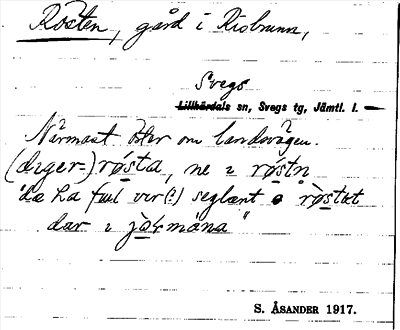 Rosten, gård i Risbrunn,
Svegs
Lillhärdals sn, Svegs tg, Jämtl. l.
Närmast öster om landsvägen.
(diger=) røsta, ne i røstn
"dæ ha ful vur(!) seglænt o røstut
dar i jo̤rmäna"
S. ÅSANDER 1917.